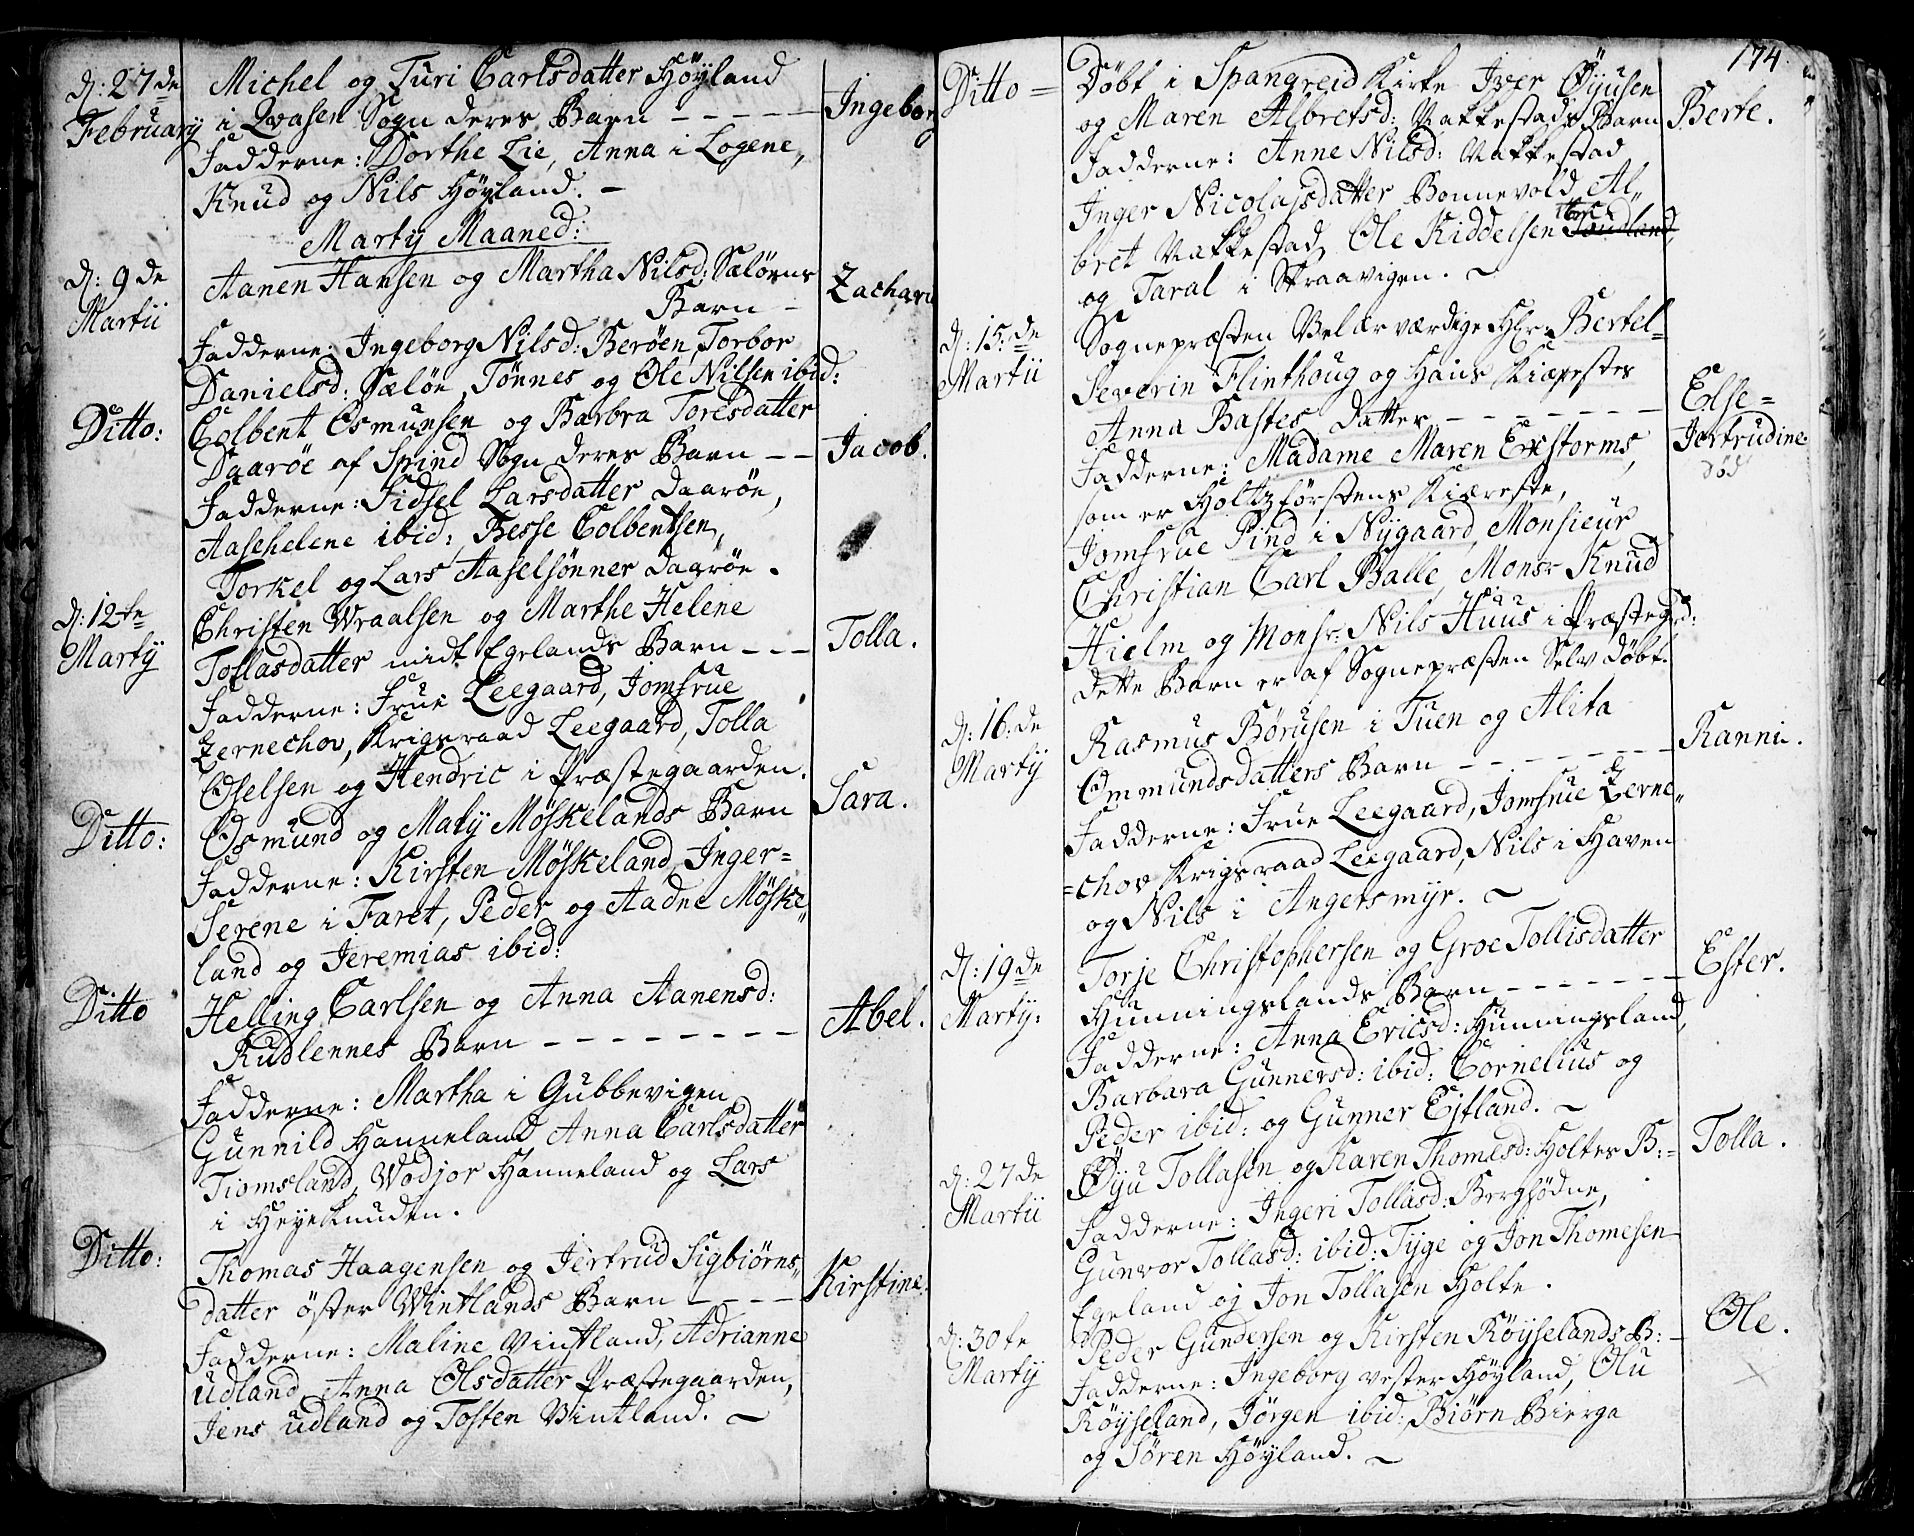 d: 27de February
Michel og Turi Carlsdatter Höyland
i Qvasen Sogn deres Barn - - - - -
Ingeborg
Fadderne: Dorthe Lie, Anna i Logene,
Knud og Nils Höyland. -
Martij Maaned:
d: 9de Martii
Aanen Hansen og Martha Nilsd: Sælörns
Barn -
Zachari
Fadderne: Ingeborg Nilsd: Beröen, Torbor
Danielsd: Sælöe, Tönnes og Ole Nilsen ibid:
Ditto:
Colbent Osmunsen og Barbra Toresdatter
Daaröe af Spind Sogn deres Barn - -
Jacob.
Fadderne: Sidsel Larsdatter Daaröe,
Aasehelene ibid: Besse Colbentsen,
Torkel og Lars Aaselsönner Daaröe.
d: 12te Martij
Christen Wraalsen og Marthe Helene
Tollasdatter midt Egelands Barn - - -
Tolla.
Fadderne: Frue Leegaard, Jomfrue
Zernechov, Krigsraad Leegaard, Tolla
Oselsen og Hendric i Præstegaarden.
Ditto:
Osmund og Maty Möskelands Barn
Sara.
Fadderne: Kirsten Möskeland, Inger=
Serene i Faret, Peder og Aadne Möske
land og Jeremias ibid:
Ditto
Helling Carlsen og Anna Aanensd:
Rudlennes Barn - - - - - - -
Abel.
Fadderne: Martha i Gubbevigen
Gunnild Hanneland Anna Carlsdatter
Tiomsland, Wodjor Hanneland og Lars
i Heyeknuden.
Ditto:
Thomas Haagensen og Jertrud Sigbiörns
datter öster Wintlands Barn - - - -
Kirstine.
Fadderne: Maline Vintland, Adrianne
udland, Anna Olsdatter Præstegaarden,
Jens udland og Tosten Vintland. ~
174.
Ditto =
Döbt i Spangreid Kirke Iver Öyusen
og Maren Albretsd: Vakkestads Barn
Berte.
Fadderne: Anne Nilsd: Vakkestad
Inger Nicolajsdatter Bonnevold, Al=
bret Vakkestad, Ole Kiddelsen
og Taral i Skraavigen. ~
d: 15de Martii
Sognepræsten Velærværdige Hr: Bertel=
Severin Flinthoug og Hans Kiærestes
Anna Bastes Datter - - - - - - -
Else=
Jertrudine
död
Fadderne: Madame Maren Exstorms,
som er Holtzförstens Kiæreste,
Jomfrue Pind i Nygaard, Monsieur
Christian Carl Balle, Monsr Knud
Hielm og Monsr: Nils Huus i Præstegrd:
dette Barn er af Sognepræsten Selv döbt.
d: 16de Martij
Rasmus Börusen i Tuen og Alita
Ommundsdatters Barn - - - - - - -
Ranni.
Fadderne: Frue Leegaard, Jomfrue Zerne=
=chov Krigsraad Leegaard, Nils i Haven
og Nils i Angersmyr. ~
d: 19de Martij:
Torje Christophersen og Groe Tollisdatter
Hunningslands Barn - - - - - - -
Ester.
Fadderne: Anna Ericsd: Hunningsland,
Barbara Gunnersd: ibid: Cornelius og
Peder ibid: og Gunner Eitland. ~
d: 27de Martii
Öyu Tollasen og Karen Thomesd: Holtes B:=
Tolla.
Fadderne: Ingeri Tollasd: Bergsödne,
Gunvor Tollasd: ibid: Tyge og Jon Thomesen
Egeland og Jon Tollasen Holte.
d: 30te Martij
Peder Gundersen og Kirsten Röyselands B: -
Ole.
Fadderne: Ingeborg vester Höyland, Olu
Röyseland, Jörgen ibid: Biörn Bierga
og Sören Höyland. ~